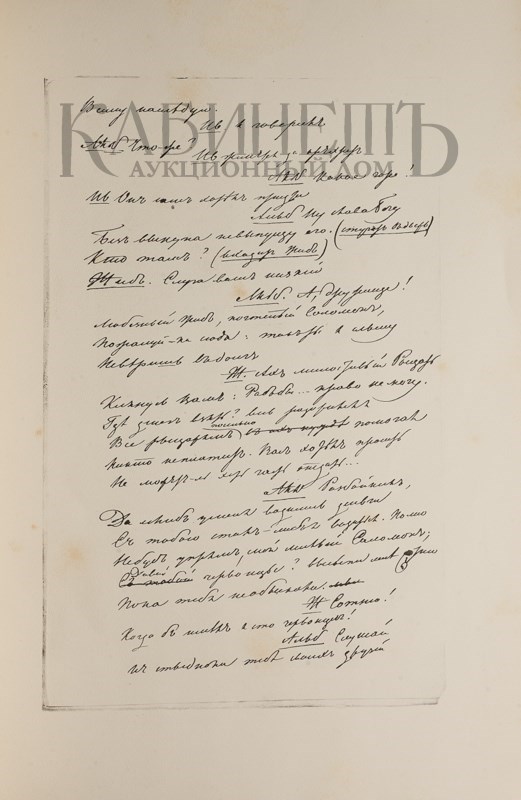 Всему
Ив я говорилъ
КАБИНЕТЪ
Альб Что-же?
Ив
АУКЦИОННЫЙ ДОМ
Альб Какое горе!
Ив Онъ самъ хотѣлъ придти
Альб Ну слава Богу
Безъ выкупа не выпущу его. (стучатъ въ дверь)
Кто тамъ? (входитъ Жидъ)
Жидъ. Слуга вашъ низкой
Альб. А, дружище!
Проклятый жидъ, почтенный Соломонъ,
Пожалуй-ка сюда: такъ ты я слышу
Не вѣришь въ долгъ
Ж. Ахъ милостивый Рыцарь
Клянусь вамъ: Радъ бы... право не могу.
Гдѣ денегъ взять? весь разорился я
Все рыцарямъ помогая
Никто не платитъ. Васъ хотѣлъ просить
Не можете-ль хоть часть отдать...
Альб Разбойникъ,
Да еслибъ у меня водились деньги
Съ тобою сталъ-либъ я возиться. Полно
Не будь упрямъ, мой милый Соломонъ;
Давай червонцы? Высыпи мнѣ сотню
Пока тебя не обыскали
Ж Сотню!
Когда бъ имѣлъ я сто червонцевъ!
Альб Слушай
Не стыдно ли тебѣ своихъ друзей